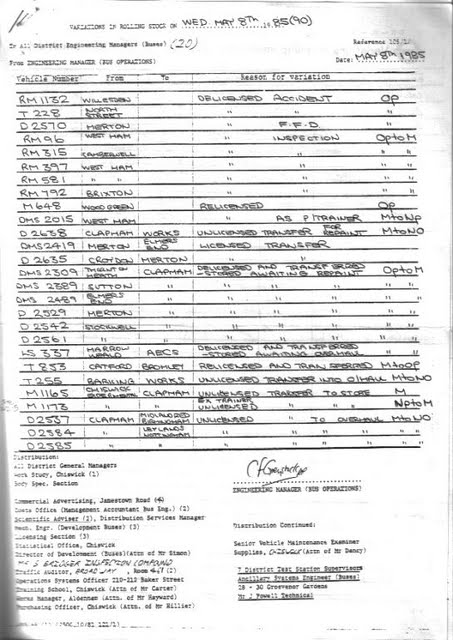 VARIATIONS IN ROLLING STOCK ON WED. MAY 8TH 1985 (90)
To All District Engineering Managers (Buses) (20)
Reference
From ENGINEERING MANAGER (BUS OPERATIONS)
Date: MAY 8TH 1985
Vehicle Number From To Reason for variation
RM1132 WILLESDEN DELICENSED ACCIDENT Op
T 228 NORTH STREET " " "
D 2570 MERTON " F.F.D "
RM 96 WEST HAM " INSPECTION Op to M
RM 315 CAMBERWELL " " "
RM 397 WEST HAM " " "
RM 581 " " " " "
RM 792 BRIXTON " " "
M 648 WOOD GREEN RELICENSED Op
DMS 2015 WEST HAM " AS P/TRAINER M to Np
D 2638 CLAPHAM WORKS UNLICENSED TRANSFER FOR REPAINT M to NO
DMS 2419 MERTON ELMERS END LICENSED TRANSFER
D 2635 CROYDON MERTON " "
DMS 2309 THORNTON HEATH CLAPHAM DELICENSED AND TRANSFERRED - STORED AWAITING REPAINT Op to M
DMS 2389 SUTTON " " " " "
DMS 2489 ELMERS END " " " " "
D 2529 MERTON " " " " "
D 2542 STOCKWELL " " " " "
D 2561 " " " " " "
LS 337 HARROW WEALD AECS DELICENSED AND TRANSFERRED - STORED AWAITING OVERHAUL "
T 853 CATFORD BROMLEY RELICENSED AND TRANSFERRED M to Op
T 255 BARKING WORKS UNLICENSED TRANSFER INTO O/HAUL M to NO
M 1165 CHISWICK CLAPHAM UNLICENSED TRANSFER TO STORE M
M 1173 " " EX TRAINER UNLICENSED " " " Np to M
D 2537 CLAPHAM MIDLAND RED BIRMINGHAM UNLICENSED " TO OVERHAUL M to NO
D 2584 " LEYLANDS NOTTINGHAM " " " " "
D 2585 " " " " " " "
Distribution:
All District General Managers
Work Study, Chiswick (1)
Body Spec. Section
ENGINEERING MANAGER (BUS OPERATIONS)
Commercial Advertising, Jamestown Road (4)
Costs Office (Management Accountant Bus Eng.) (2)
Scientific Adviser (2), Distribution Services Manager
Mech. Engr. (Development Buses) (3)
Licensing Section (3)
Statistical Office, Chiswick
Director of Development (Buses)(Attn of Mr Simon)
MR S BRIDGER INSPECTION COMPOUND
Traffic Auditor, BROADWAY, Room 467 (2)
Operations Systems Officer 210-212 Baker Street
Training School, Chiswick (Attn of Mr Carter)
Works Manager, Aldenham (Attn. of Mr Hayward)
Purchasing Officer, Chiswick (Attn of Mr Hillier)
Distribution Continued:
Senior Vehicle Maintenance Examiner
Supplies, CHISWICK (Attn. of Mr Dency)
7 District Test Station Supervisors
Ancillary Systems Engineer (Buses)
28 - 30 Grosvenor Gardens
Mr J Powell Technical